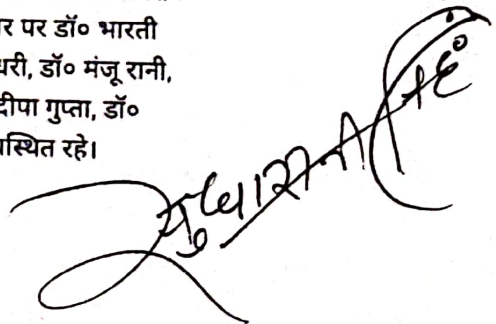 र पर डॉ० भारती
धरी, डॉ० मंजू रानी,
दीपा गुप्ता, डॉ०
स्थित रहे।
सुधारानी सिंह